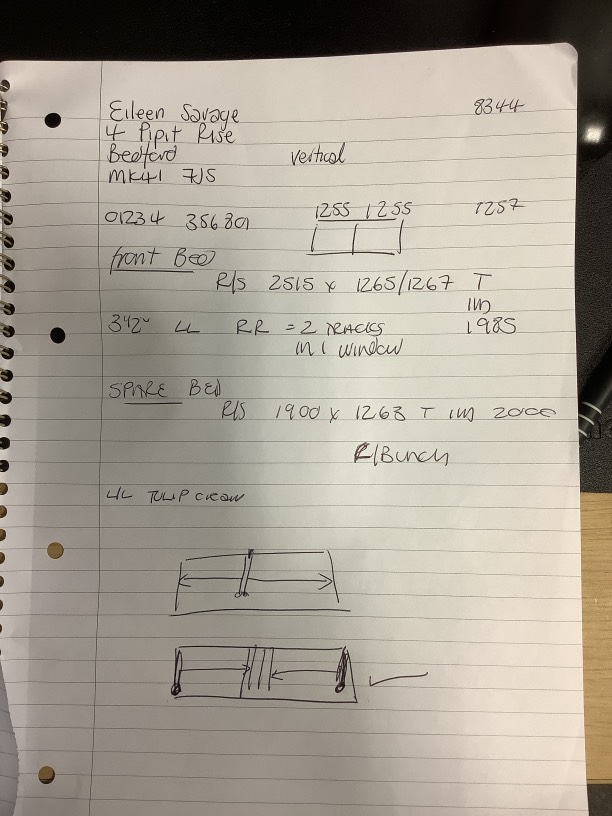 Eileen Savage 8344
4 Pipit Rise
Bedford vertical
MK41 7JS
01234 356801 1255 1255 1257
front Bed
R/S 2515 x 1265/1267 T
1985
3½" LL RR = 2 TRACKS
IN 1 WINDOW
SPARE BED
R/S 1900 x 1263 T 2000
/Bunch
TULIP CREAM